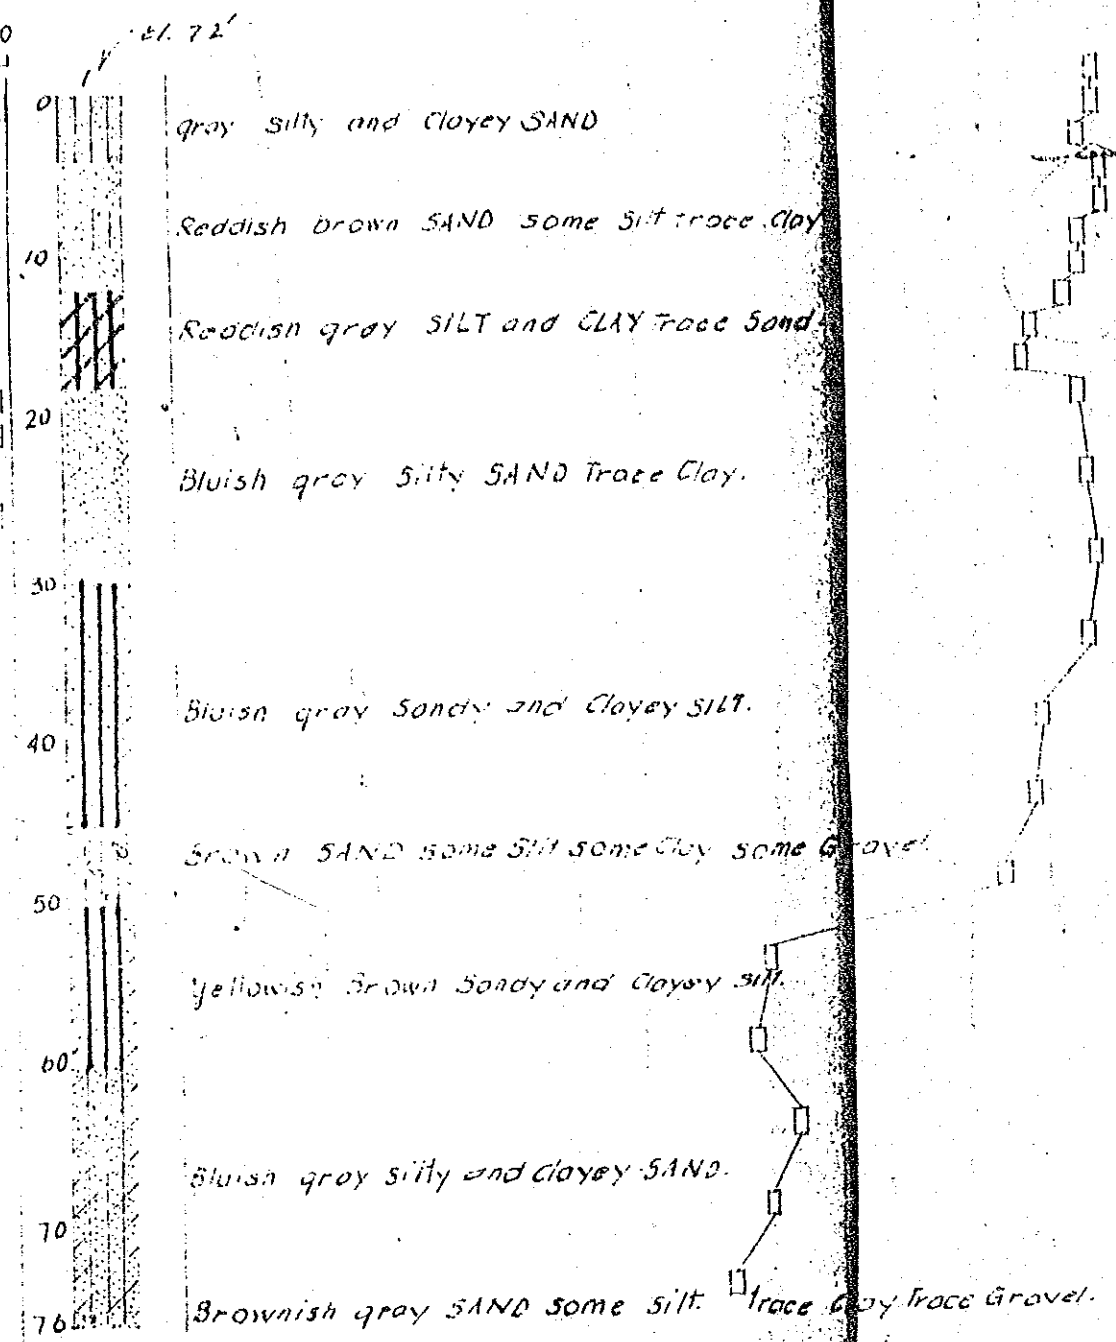 0
El. 72'
0
gray silty and Clayey SAND
Reddish brown SAND some Silt trace Clay
10
Reddish gray SILT and CLAY Trace Sand.
20
Bluish gray Silty SAND Trace Clay.
30
Bluish gray Sandy and Clayey SILT.
40
Brown SAND some Silt some Clay some Gravel.
50
Yellowish Brown Sandy and Clayey Silt.
60
Bluish gray silty and clayey SAND.
70
Brownish gray SAND some silt. Trace Clay Trace Gravel.
76